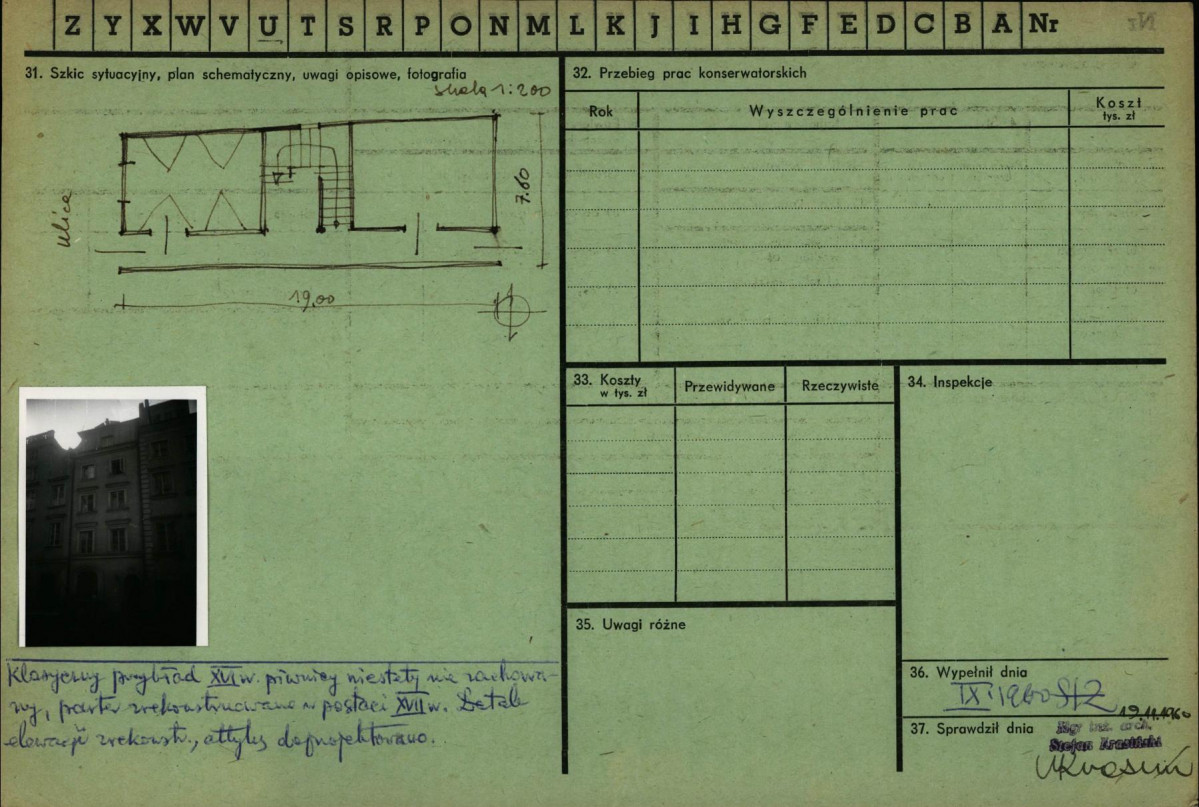 Z Y X W V U T S R P O N M L K J I H G F E D C B A Nr
31. Szkic sytuacyjny, plan schematyczny, uwagi opisowe, fotografia
skala 1:200
ulica
7.60
19,00
Klasyczny przykład XVI w. piwnicy niestety nie zachowa-
ny, parter zrekonstruowano w postaci XVII w. Detale
elewacji zrekonstr., attykę doprojektowano.
32. Przebieg prac konserwatorskich
Rok
Wyszczególnienie prac
Koszt
tys. zł
33. Koszty
w tys. zł
Przewidywane
Rzeczywiste
34. Inspekcje
35. Uwagi różne
36. Wypełnił dnia
IX 1960
37. Sprawdził dnia
19.11.1960
Mgr inż. arch.
Stefan Krasiński